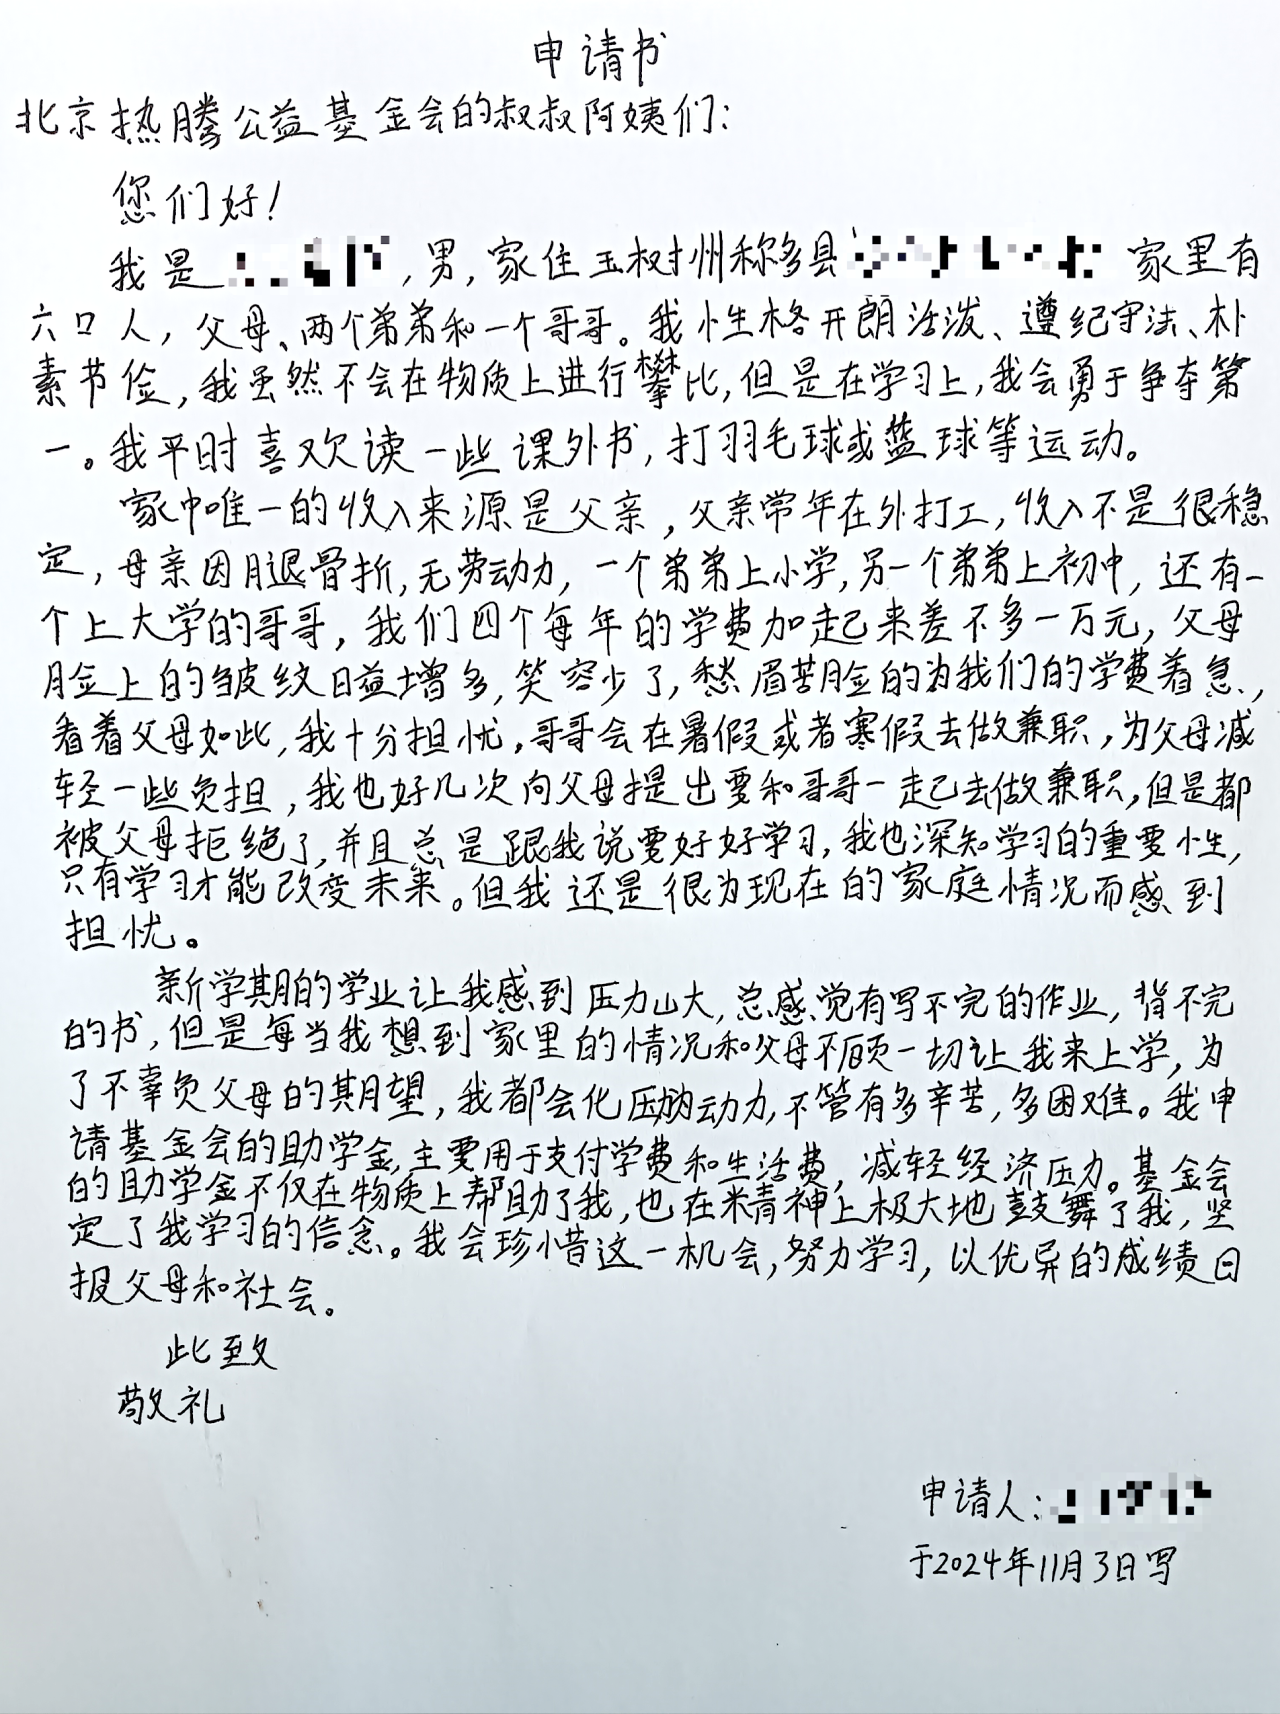 申请书
北京热腾公益基金会的叔叔阿姨们:
您们好!
我是 ,男,家住玉树州称多县 家里有
六口人,父母、两个弟弟和一个哥哥。我性格开朗活泼、遵纪守法、朴
素节俭,我虽然不会在物质上进行攀比,但是在学习上,我会勇于争夺第
一。我平时喜欢读一些课外书,打羽毛球或蓝球等运动。
家中唯一的收入来源是父亲,父亲常年在外打工,收入不是很稳
定,母亲因腿骨折,无劳动力,一个弟弟上小学,另一个弟弟上初中,还有一
个上大学的哥哥,我们四个每年的学费加起来差不多一万元,父母
脸上的皱纹日益增多,笑容少了,愁眉苦脸的为我们的学费着急,
看着父母如此,我十分担忧,哥哥会在暑假或者寒假去做兼职,为父母减
轻一些负担,我也好几次向父母提出要和哥哥一起去做兼职,但是都
被父母拒绝了,并且总是跟我说要好好学习,我也深知学习的重要性,
只有学习才能改变未来。但我还是很为现在的家庭情况而感到
担忧。
新学期的学业让我感到压力山大,总感觉有写不完的作业,背不完
的书,但是每当我想到家里的情况和父母不顾一切让我来上学,为
了不辜负父母的期望,我都会化压力为动力,不管有多辛苦,多困难。我申
请基金会的助学金,主要用于支付学费和生活费,减轻经济压力。基金会
的助学金不仅在物质上帮助了我,也在精神上极大地鼓舞了我,坚
定了我学习的信念。我会珍惜这一机会,努力学习,以优异的成绩回
报父母和社会。
此致
敬礼
申请人:
于2024年11月3日写